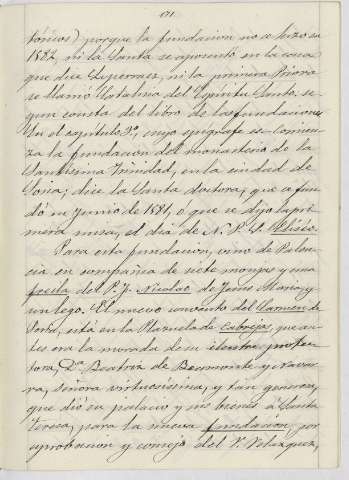 171
tóricos) porque la fundacion no se hizo en
1582, ni la Santa se aposentó en la casa
que dice Lupercaez, ni la primera Priora
se llamó Catalina del Espíritu Santo, se-
gun consta del libro de las fundaciones
En el capítulo 3º, cuyo epígrafe se comien-
za la fundacion del monasterio de la
Santísima Trinidad, en la ciudad de
Soria; dice la Santa doctora, que se fun-
dó en Junio de 1581, ó que se dijo la pri-
mera misa, el dia de N. P. S. Eliseo.
Para esta fundacion, vino de Palen-
cia en compañia de siete monjas y una
freila del P. F. Nicolao de Jesus Maria, y
un lego. El nuevo convento del Carmen de
Soria, está en la Plazuela de Cabrejas, que an-
tes era la morada de su ilustre protec-
tora, Dª Beatriz de Beaumonte y Navar-
ra, señora virtuosisima, y tan generosa,
que dió su palacio y sus bienes á Santa
Teresa, para la nueva fundacion, por
aprobacion y consejo del V. Velazquez,